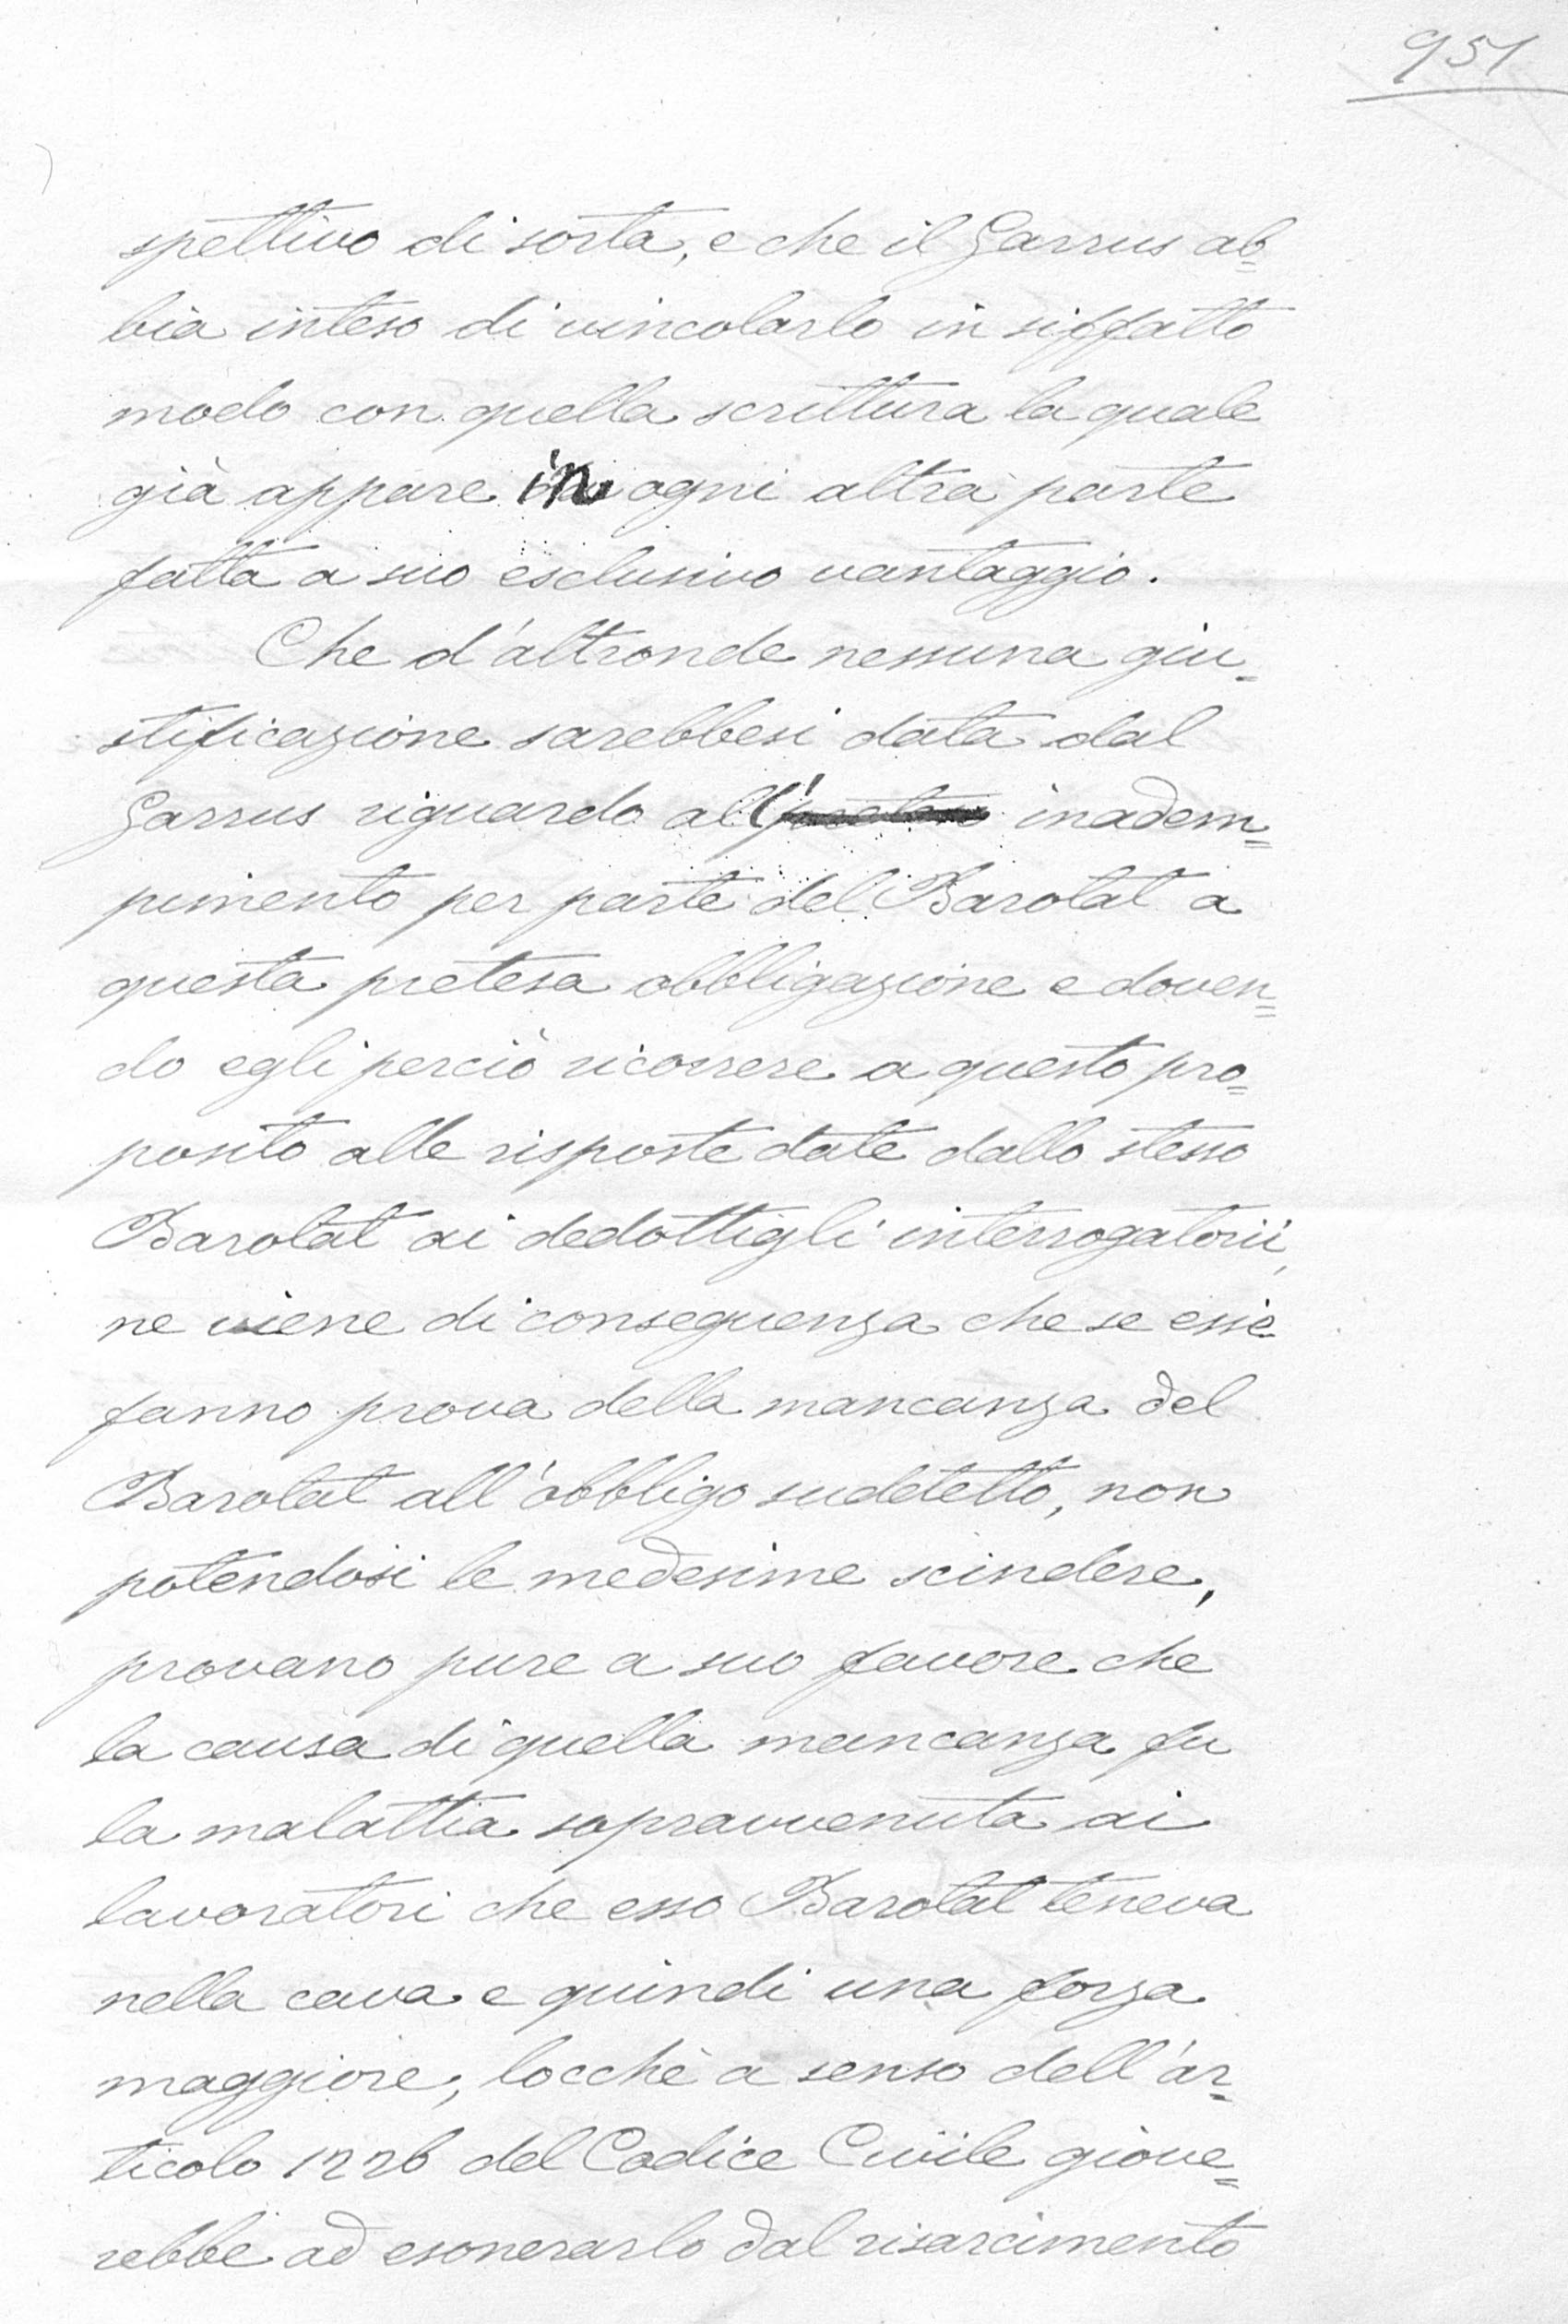 951
spettivo di sorta, e che il Garrus ab=
bia inteso di vincolarlo in siffatto
modo con quella scrittura la quale
già appare in ogni altra parte
fatta a suo esclusivo vantaggio.
Che d'altronde nessuna giu=
stificazione sarebbesi data dal
Garrus riguardo all' inadem=
pimento per parte del Barolat a
questa pretesa obbligazione e doven=
do egli perciò ricorrere a questo pro=
posito alle risposte date dallo stesso
Barolat ai dedottigli interrogatorii,
ne viene di conseguenza che se esse
fanno prova della mancanza del
Barolat all'obbligo sudetetto, non
potendosi le medesime scindere,
provano pure a suo favore che
la causa di quella mancanza fu
la malattia sopravvenuta ai
lavoratori che esso Barolat teneva
nella cava e quindi una forza
maggiore, locchè a senso dell'ar=
ticolo 1226 del Codice Civile giove=
rebbe ad esonerarlo dal risarcimento